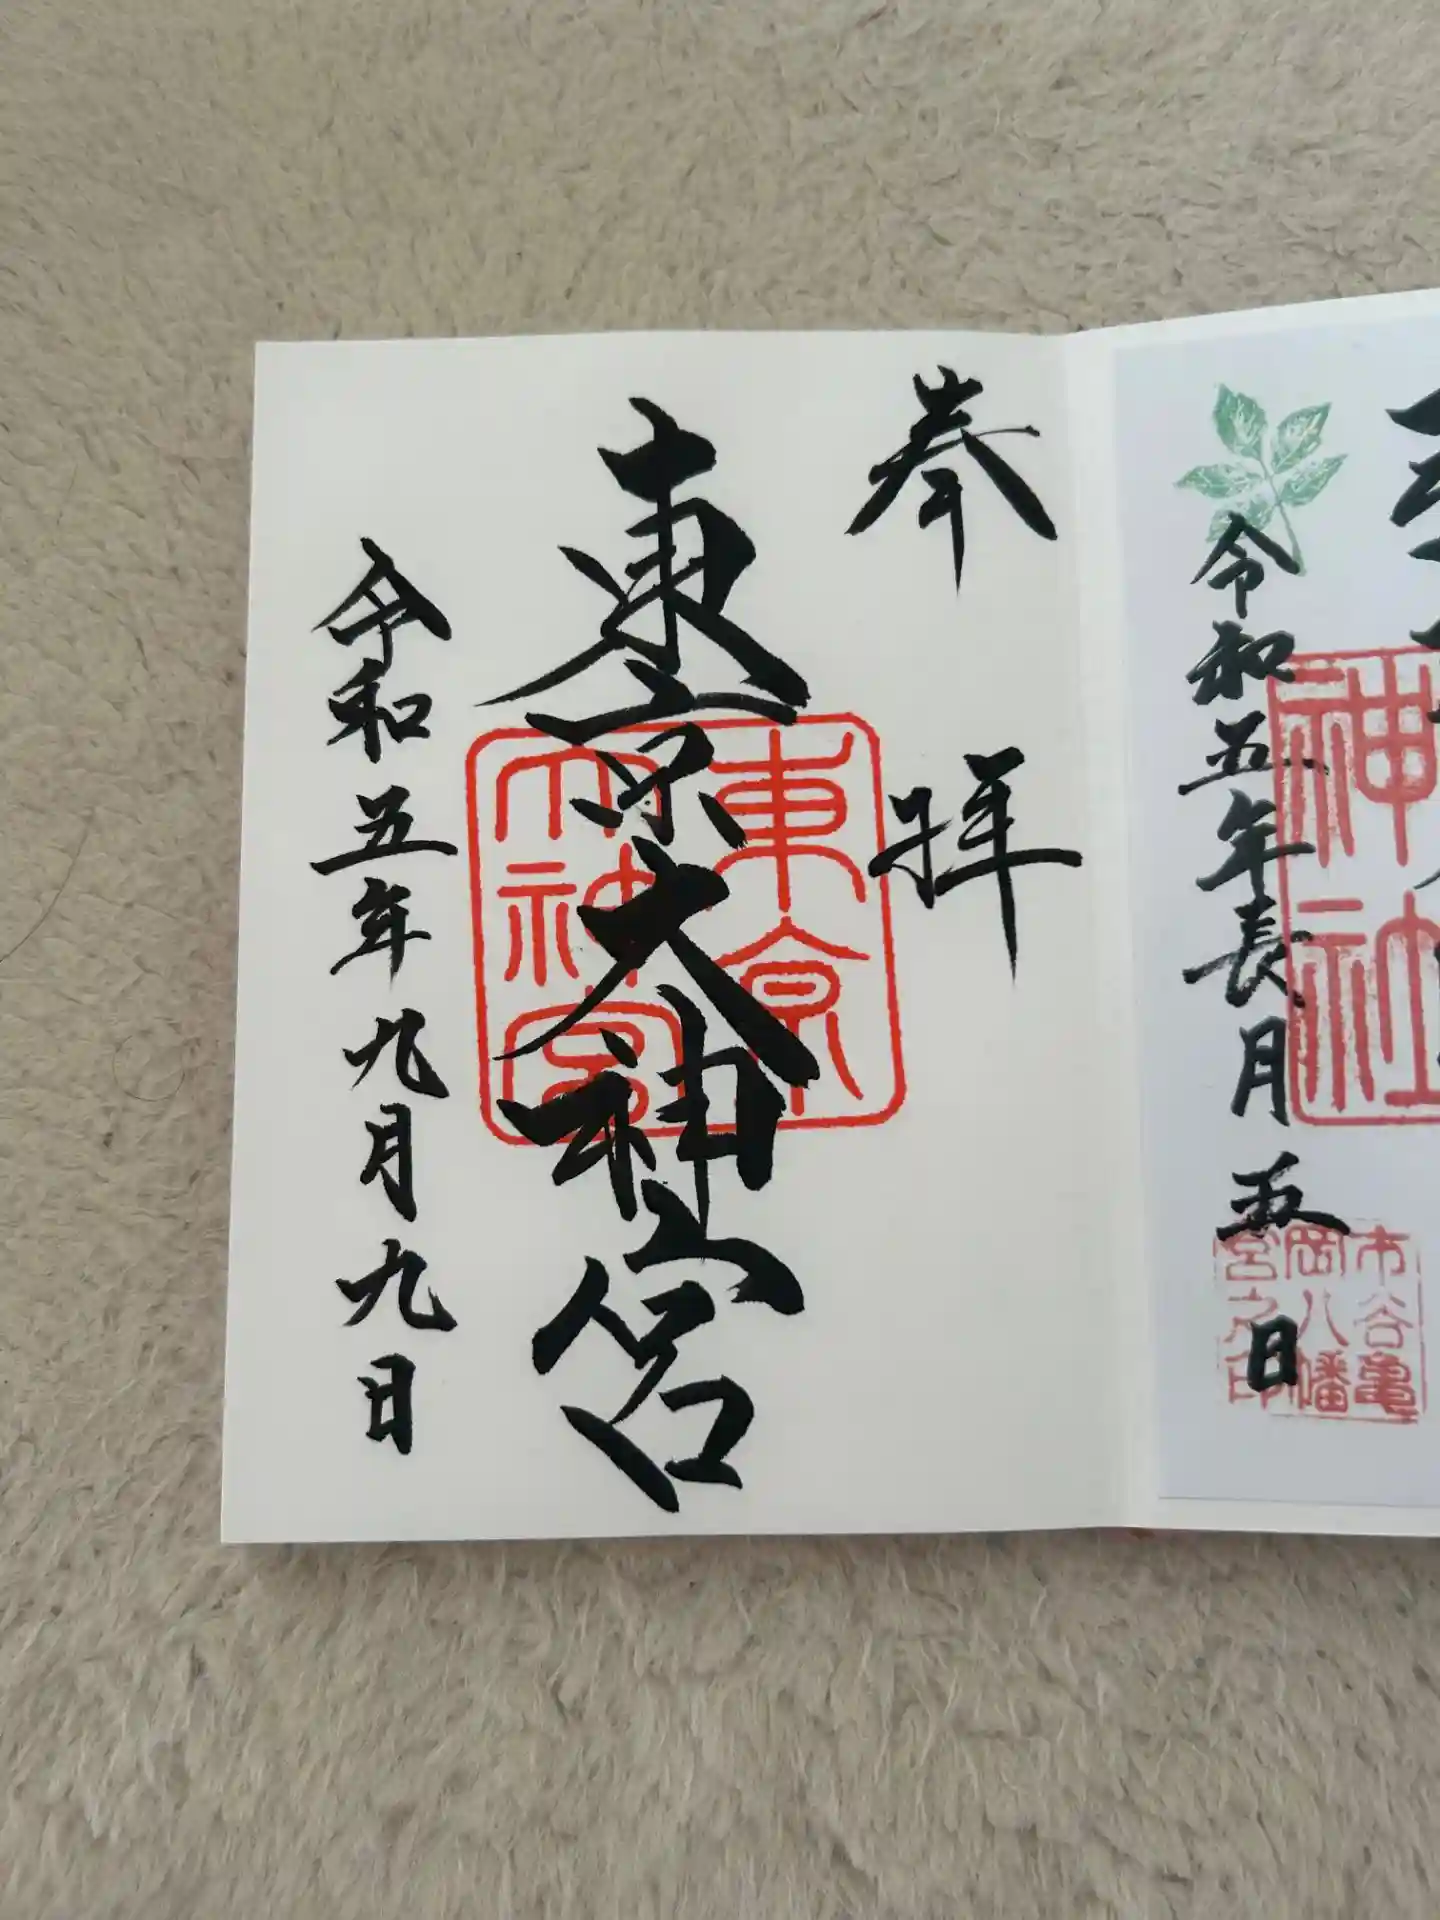 令和五年長月五日
神社
市谷亀
岡八幡
宮之印
奉拝
東京大神宮
東京
大神宮
令和五年九月九日